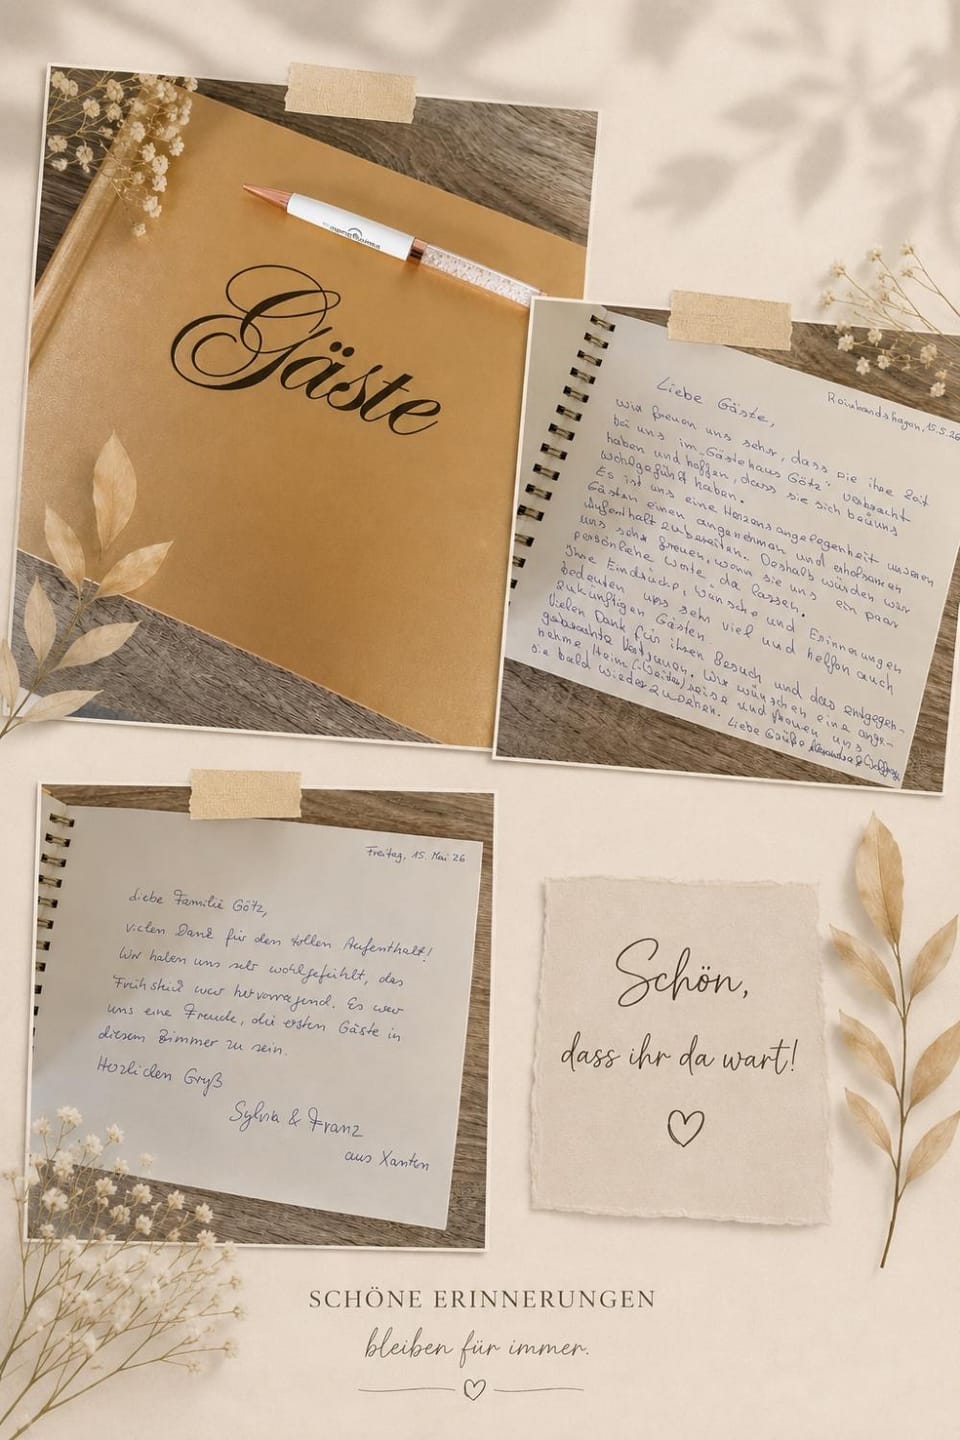 Gäste
Roinkendshagen, 15.5.26
Liebe Gäste,
wir freuen uns sehr, dass sie ihre Zeit
bei uns im „Gästehaus Götz“ verbracht
haben und hoffen, dass sie sich bei uns
wohlgefühlt haben.
Es ist uns eine Herzensangelegenheit unseren
Gästen einen angenehmen und erholsamen
Aufenthalt zubereiten. Deshalb würden wir
uns sehr freuen, wenn sie uns ein paar
persönliche Worte da lassen.
Ihre Eindrücke, Wünsche und Erinnerungen
bedeuten uns sehr viel und helfen auch
zukünftigen Gästen.
Vielen Dank für ihren Besuch und das entgegen-
gebrachte Vertrauen. Wir wünschen eine ange-
nehme Heim(-Weiter)reise und freuen uns
sie bald wiederzusehen. Liebe Grüße Alexandra &
Freitag, 15. Mai 26
Liebe Familie Götz,
vielen Dank für den tollen Aufenthalt!
Wir haben uns sehr wohlgefühlt, das
Frühstück war hervorragend. Es war
uns eine Freude, die ersten Gäste in
diesem Zimmer zu sein.
Herzlichen Gruß
Sylvia & Franz
aus Xanten
Schön,
dass ihr da wart!
SCHÖNE ERINNERUNGEN
bleiben für immer.